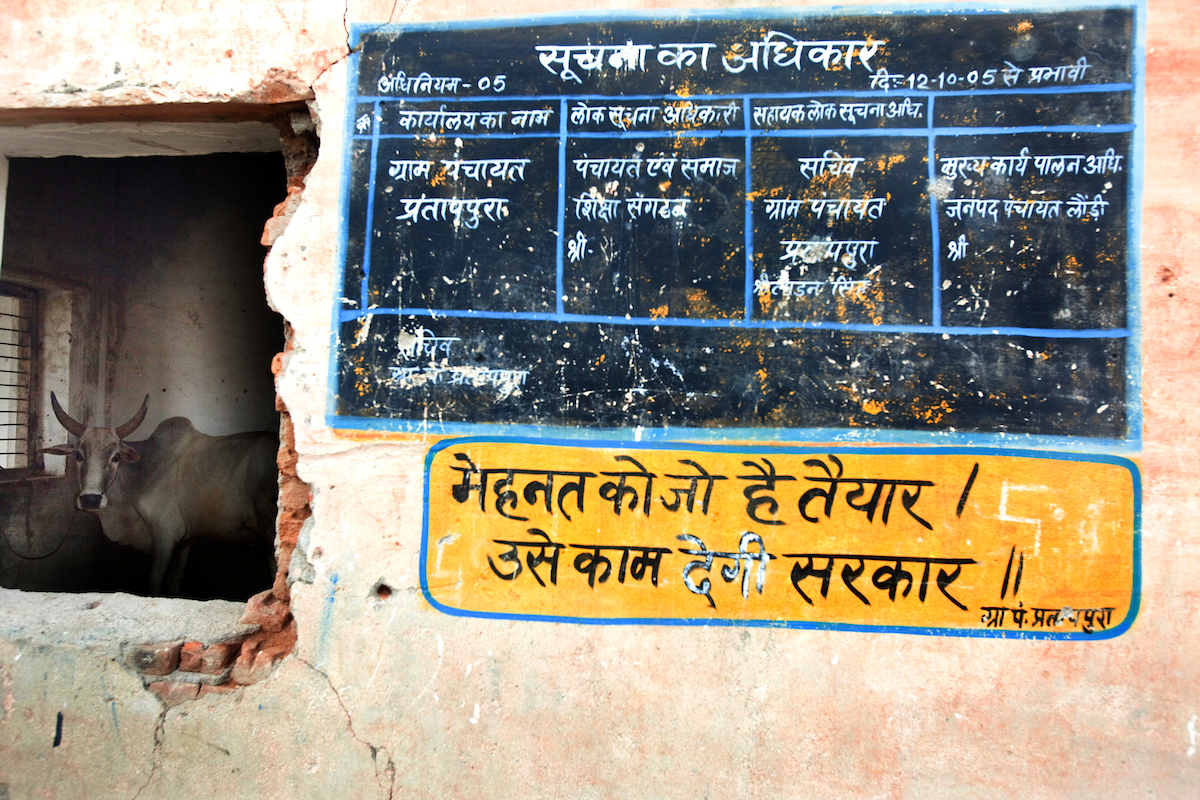 सूचना का अधिकार
अधिनियम - 05
दि:- 12-10-05 से प्रभावी
कार्यालय का नाम
लोक सूचना अधिकारी
सहायक लोक सूचना अधि.
ग्राम पंचायत
प्रतापपुरा
पंचायत एवं समाज
शिक्षा संगठन
श्री-
सचिव
ग्राम पंचायत
प्रतापपुरा
सिंह
मुख्य कार्य पालन अधि.
जनपद पंचायत लौंडी
श्री
सचिव
ग्रा. पं. प्रतापपुरा
मेहनत को जो है तैयार ।
उसे काम देगी सरकार ॥
ग्रा पं. प्रतापपुरा